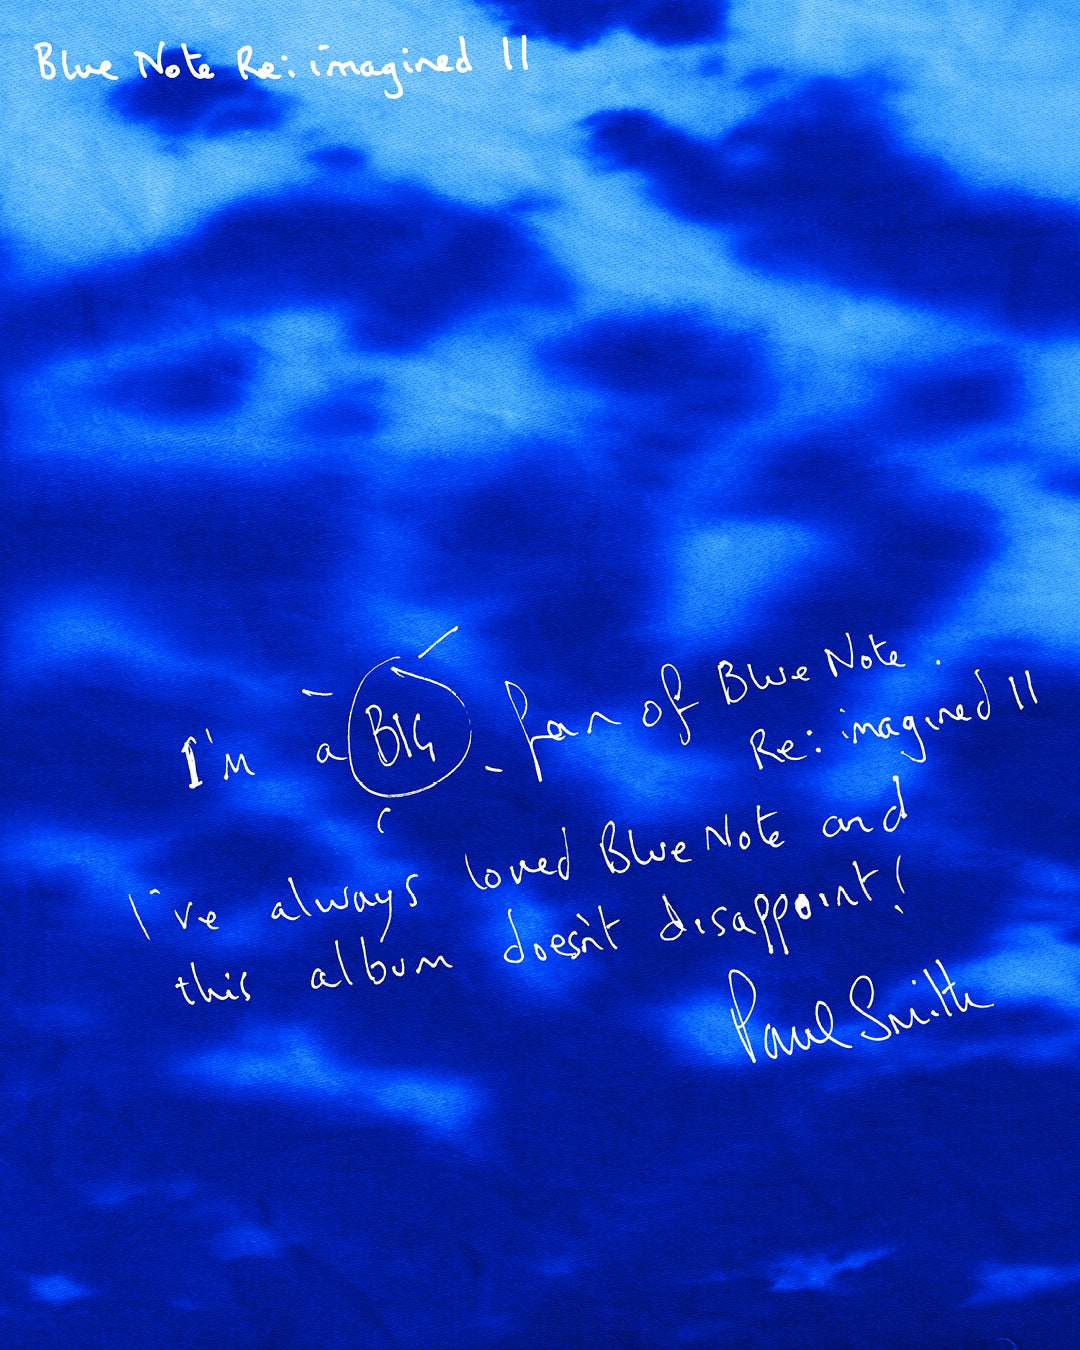 Blue Note Re: imagined II
I'm a BIG fan of Blue Note.
Re: imagined II
I've always loved Blue Note and
this album doesn't disappoint!
Paul Smith